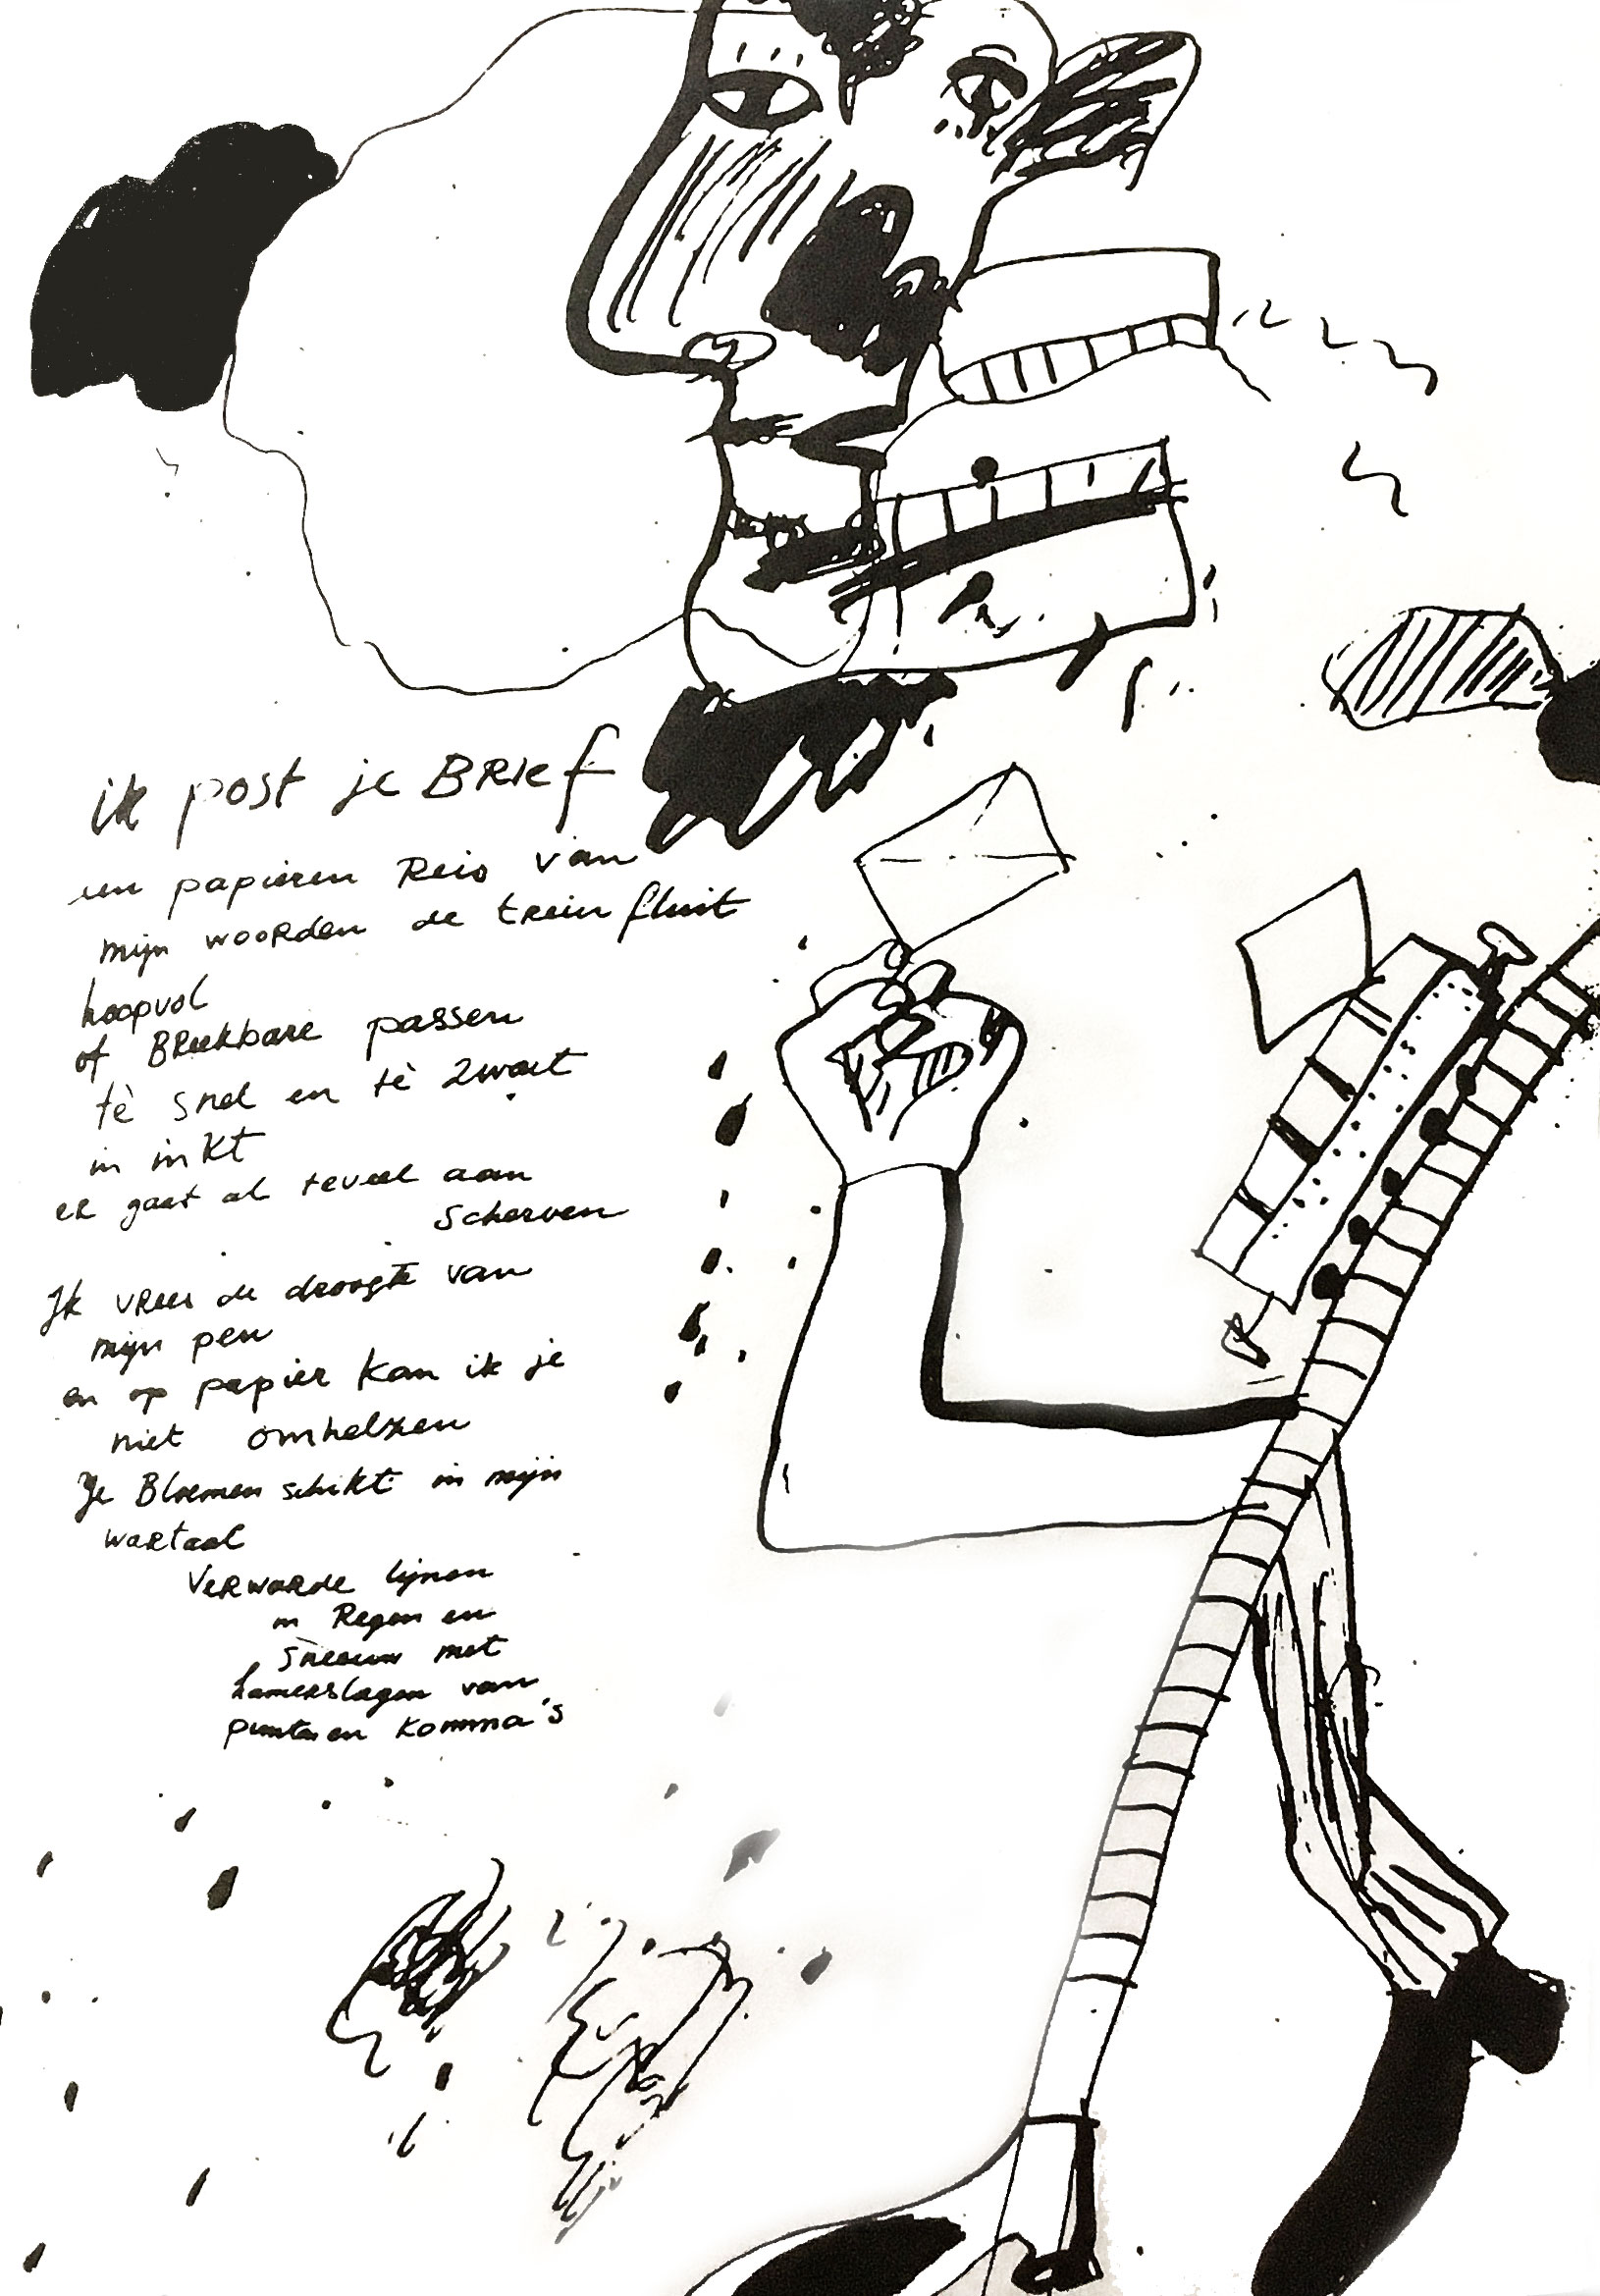 ik post je BRief
een papieren Reis van
mijn woorden de trein fluit
hoopvol
of BReekbare passen
tè snel en tè zwart
in inkt
er gaat al teveel aan
scherven
Ik vrees de droogte van
mijn pen
en op papier kan ik je
niet omhelzen
Je Bloemen schikt in mijn
wartaal
Verwarde lijnen
in Regen en
sneeuw met
hamerslagen van
punten en komma's